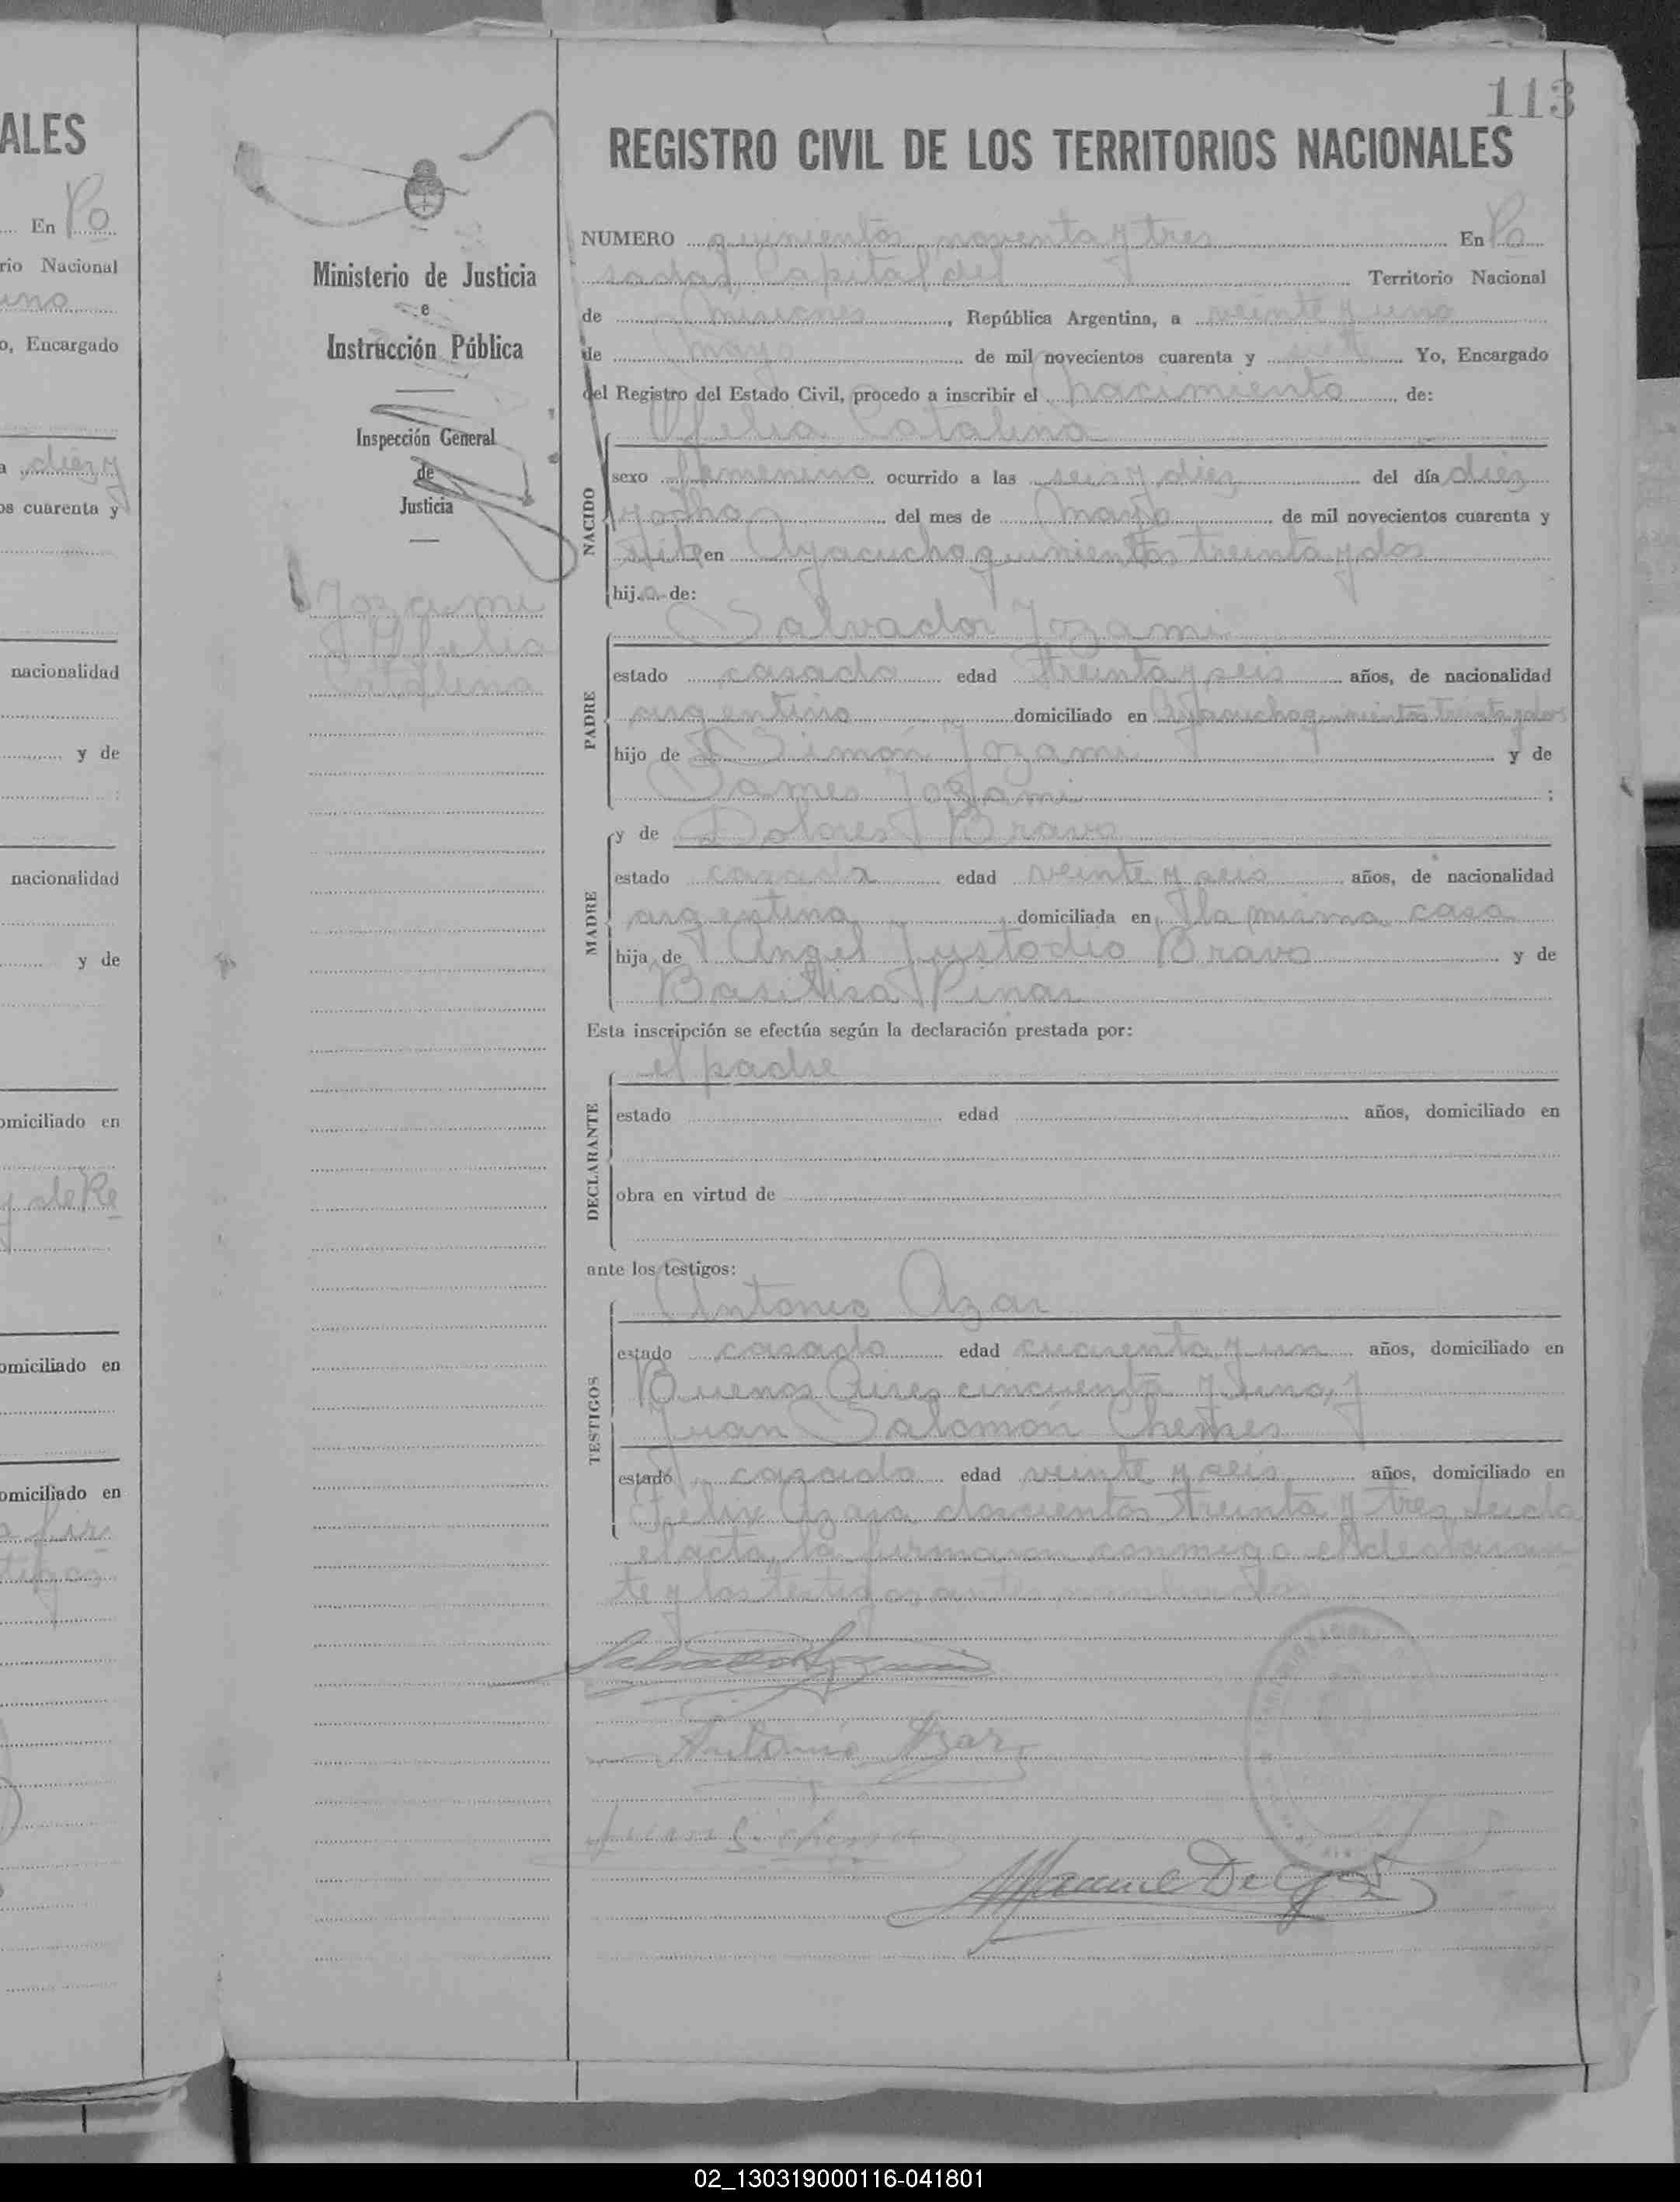 ALES
En Po
rio Nacional
uno
o, Encargado
a diez y
os cuarenta y
nacionalidad
y de
nacionalidad
y de
omiciliado en
y de Re
omiciliado en
omiciliado en
a fir
tigos
Ministerio de Justicia
e
Instrucción Pública
Inspección General
de
Justicia
Jozami
Ofelia
Catalina
113
REGISTRO CIVIL DE LOS TERRITORIOS NACIONALES
NUMERO quinientos noventa y tres En Po
sadas, Capital del Territorio Nacional
de Misiones, República Argentina, a veinte y uno
de mayo de mil novecientos cuarenta y siete Yo, Encargado
del Registro del Estado Civil, procedo a inscribir el nacimiento de:
Ofelia Catalina
NACIDO
sexo femenino ocurrido a las seis y diez del día diez
y ocho del mes de mayo de mil novecientos cuarenta y
siete en Ayacucho quinientos treinta y dos
hija de:
Salvador Jozami
PADRE
estado casado edad treinta y seis años, de nacionalidad
argentino domiciliado en Ayacucho quinientos treinta y dos
hijo de Simón Jozami y de
James Jozami ;
MADRE
y de Dolores Bravo
estado casada edad veinte y seis años, de nacionalidad
argentina domiciliada en la misma casa
hija de Angel Custodio Bravo y de
Basilisa Pinas
Esta inscripción se efectúa según la declaración prestada por:
el padre
DECLARANTE
estado edad años, domiciliado en
obra en virtud de
ante los testigos:
Antonio Azar
TESTIGOS
estado casado edad cuarenta y un años, domiciliado en
Buenos Aires cincuenta y uno, y
Juan Salomón Chemes
estado casado edad veinte y seis años, domiciliado en
Felix Azara doscientos treinta y tres. Leida
el acta, la firmaron conmigo el declaran-
te y los testigos antes nombrados
Salvador Jozami
Antonio Azar
Manuel De
02_130319000116-041801